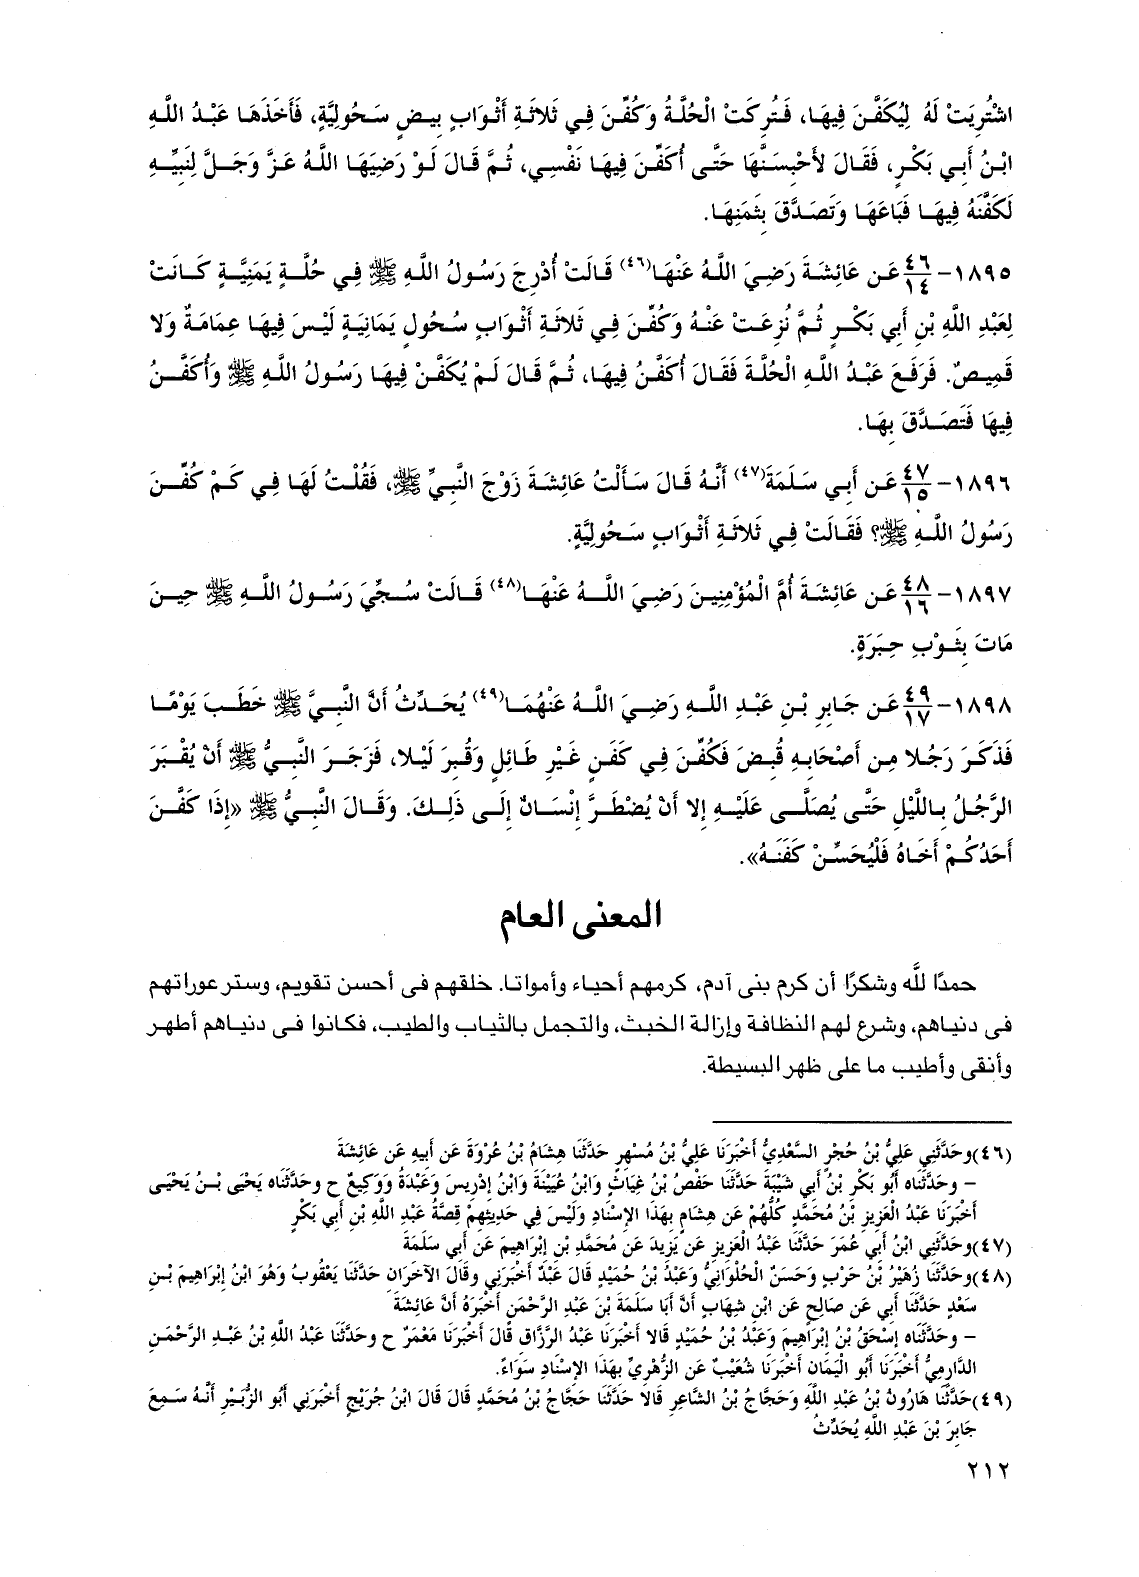 اشْتُرِيَتْ لَهُ لِيُكَفَّنَ فِيهَا، فَتُرِكَتْ الْحُلَّةُ وَكُفِّنَ فِي ثَلاثَةِ أَثْوَابٍ بِيضٍ سَحُولِيَّةٍ، فَأَخَذَهَا عَبْدُ اللَّهِ
ابْنُ أَبِي بَكْرٍ، فَقَالَ لأَحْبِسَنَّهَا حَتَّى أُكَفِّنَ فِيهَا نَفْسِي، ثُمَّ قَالَ لَوْ رَضِيَهَا اللَّهُ عَزَّ وَجَلَّ لِنَبِيِّهِ
لَكَفَّنَهُ فِيهَا فَبَاعَهَا وَتَصَدَّقَ بِثَمَنِهَا.
١٨٩٥- ٤٦/١٤ عَن عَائِشَةَ رَضِيَ اللَّهُ عَنْهَا(٤٦) قَالَتْ أُدْرِجَ رَسُولُ اللَّهِ ﷺ فِي حُلَّةٍ يَمَنِيَّةٍ كَانَتْ
لِعَبْدِ اللَّهِ بْنِ أَبِي بَكْرٍ ثُمَّ نُزِعَتْ عَنْهُ وَكُفِّنَ فِي ثَلاثَةِ أَثْوَابٍ سُحُولٍ يَمَانِيَةٍ لَيْسَ فِيهَا عِمَامَةٌ وَلا
قَمِيصٌ. فَرَفَعَ عَبْدُ اللَّهِ الْحُلَّةَ فَقَالَ أُكَفَّنُ فِيهَا، ثُمَّ قَالَ لَمْ يُكَفَّنْ فِيهَا رَسُولُ اللَّهِ ﷺ وَأُكَفَّنُ
فِيهَا فَتَصَدَّقَ بِهَا.
١٨٩٦- ٤٧/١٥ عَن أَبِي سَلَمَةَ(٤٧) أَنَّهُ قَالَ سَأَلْتُ عَائِشَةَ زَوْجَ النَّبِيِّ ﷺ، فَقُلْتُ لَهَا فِي كَمْ كُفِّنَ
رَسُولُ اللَّهِ ﷺ؟ فَقَالَتْ فِي ثَلاثَةِ أَثْوَابٍ سَحُولِيَّةٍ.
١٨٩٧- ٤٨/١٦ عَن عَائِشَةَ أُمَّ الْمُؤْمِنِينَ رَضِيَ اللَّهُ عَنْهَا(٤٨) قَالَتْ سُجِّيَ رَسُولُ اللَّهِ ﷺ حِينَ
مَاتَ بِثَوْبِ حِبَرَةٍ.
١٨٩٨- ٤٩/١٧ عَن جَابِرِ بْنِ عَبْدِ اللَّهِ رَضِيَ اللَّهُ عَنْهُمَا(٤٩) يُحَدِّثُ أَنَّ النَّبِيَّ ﷺ خَطَبَ يَوْمًا
فَذَكَرَ رَجُلا مِن أَصْحَابِهِ قُبِضَ فَكُفِّنَ فِي كَفَنٍ غَيْرِ طَائِلٍ وَقُبِرَ لَيْلا، فَزَجَرَ النَّبِيُّ ﷺ أَنْ يُقْبَرَ
الرَّجُلُ بِاللَّيْلِ حَتَّى يُصَلَّى عَلَيْهِ إِلا أَنْ يُضْطَرَّ إِنْسَانٌ إِلَى ذَلِكَ. وَقَالَ النَّبِيُّ ﷺ «إِذَا كَفَّنَ
أَحَدُكُمْ أَخَاهُ فَلْيُحَسِّنْ كَفَنَهُ».
المعنى العام
حمدًا للَّه وشكرًا أن كرم بنى آدم، كرمهم أحياء وأمواتا. خلقهم فى أحسن تقويم، وستر عوراتهم
فى دنياهم، وشرع لهم النظافة وإزالة الخبث، والتجمل بالثياب والطيب، فكانوا فى دنياهم أطهر
وأنقى وأطيب ما على ظهر البسيطة.
(٤٦)وحَدَّثَنِي عَلِيُّ بْنُ حُجْرٍ السَّعْدِيُّ أَخْبَرَنَا عَلِيُّ بْنُ مُسْهِرٍ حَدَّثَنَا هِشَامُ بْنُ عُرْوَةَ عَن أَبِيهِ عَن عَائِشَةَ
– وحَدَّثَنَاه أَبُو بَكْرِ بْنُ أَبِي شَيْبَةَ حَدَّثَنَا حَفْصُ بْنُ غِيَاثٍ وَابْنُ عُيَيْنَةَ وَابْنُ إِدْرِيسَ وَعَبْدَةُ وَوَكِيعٌ ح وحَدَّثَنَاه يَحْيَى بْنُ يَحْيَى
أَخْبَرَنَا عَبْدُ الْعَزِيزِ بْنُ مُحَمَّدٍ كُلُّهُمْ عَن هِشَامٍ بِهَذَا الإِسْنَادِ وَلَيْسَ فِي حَدِيثِهِمْ قِصَّةُ عَبْدِ اللَّهِ بْنِ أَبِي بَكْرٍ
(٤٧)وحَدَّثَنِي ابْنُ أَبِي عُمَرَ حَدَّثَنَا عَبْدُ الْعَزِيزِ عَن يَزِيدَ عَن مُحَمَّدِ بْنِ إِبْرَاهِيمَ عَن أَبِي سَلَمَةَ
(٤٨)وحَدَّثَنَا زُهَيْرُ بْنُ حَرْبٍ وَحَسَنٌ الْحُلْوَانِيُّ وَعَبْدُ بْنُ حُمَيْدٍ قَالَ عَبْدٌ أَخْبَرَنِي وقَالَ الآخَرَانِ حَدَّثَنَا يَعْقُوبُ وَهُوَ ابْنُ إِبْرَاهِيمَ بْنِ
سَعْدٍ حَدَّثَنَا أَبِي عَن صَالِحٍ عَن ابْنِ شِهَابٍ أَنَّ أَبَا سَلَمَةَ بْنَ عَبْدِ الرَّحْمَنِ أَخْبَرَهُ أَنَّ عَائِشَةَ
– وحَدَّثَنَاه إِسْحَقُ بْنُ إِبْرَاهِيمَ وَعَبْدُ بْنُ حُمَيْدٍ قَالا أَخْبَرَنَا عَبْدُ الرَّزَّاقِ قَالَ أَخْبَرَنَا مَعْمَرٌ ح وحَدَّثَنَا عَبْدُ اللَّهِ بْنُ عَبْدِ الرَّحْمَنِ
الدَّارِمِيُّ أَخْبَرَنَا أَبُو الْيَمَانِ أَخْبَرَنَا شُعَيْبٌ عَن الزُّهْرِيِّ بِهَذَا الإِسْنَادِ سَوَاءً.
(٤٩)حَدَّثَنَا هَارُونُ بْنُ عَبْدِ اللَّهِ وَحَجَّاجُ بْنُ الشَّاعِرِ قَالا حَدَّثَنَا حَجَّاجُ بْنُ مُحَمَّدٍ قَالَ قَالَ ابْنُ جُرَيْجٍ أَخْبَرَنِي أَبُو الزُّبَيْرِ أَنَّهُ سَمِعَ
جَابِرَ بْنَ عَبْدِ اللَّهِ يُحَدِّثُ
٢١٢